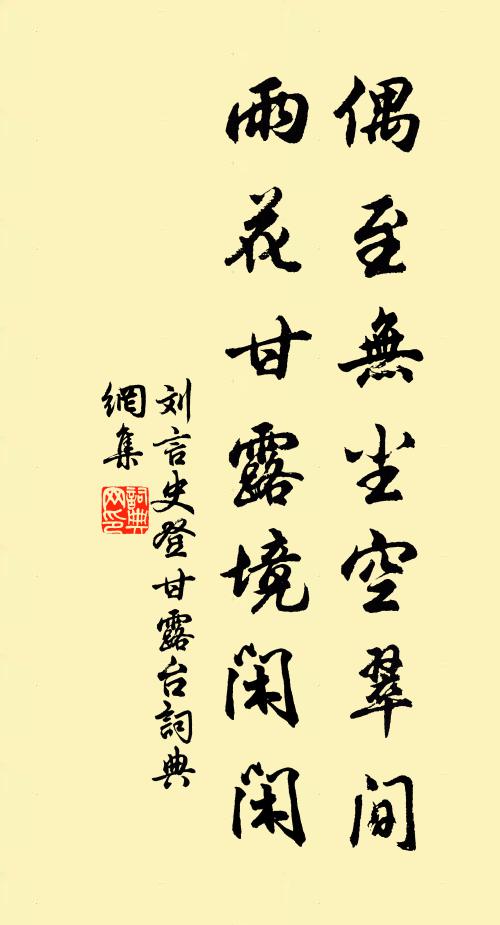 偶至無尘空翠间
雨花甘露境闲闲
刘言史登甘露台詞典
網集
詞典
网印